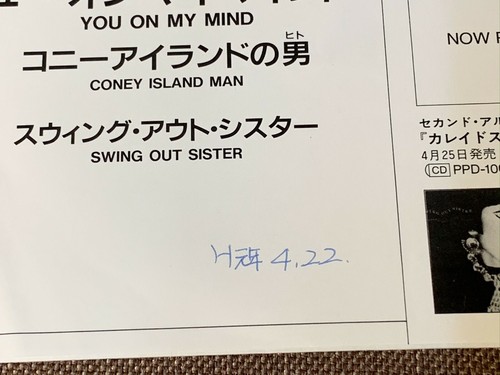 YOU ON MY MIND
コニーアイランドの男
ヒト
CONEY ISLAND MAN
スウィング・アウト・シスター
SWING OUT SISTER
4.22.
NOW
セカンド・アル
『カレイドス
4月25日発売
CD PPD-10